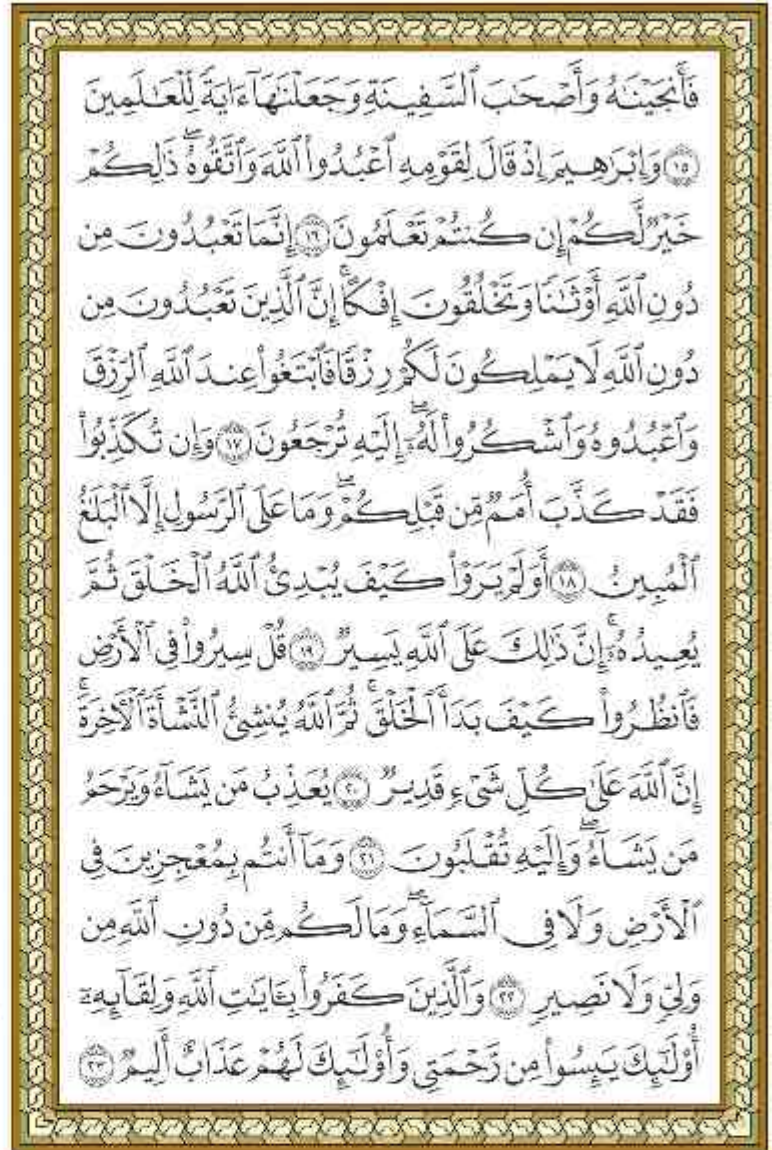 فَأَنجَيْنَٰهُ وَأَصْحَٰبَ ٱلسَّفِينَةِ وَجَعَلْنَٰهَآ ءَايَةً لِّلْعَٰلَمِينَ
۝١٥ وَإِبْرَٰهِيمَ إِذْ قَالَ لِقَوْمِهِ ٱعْبُدُوا۟ ٱللَّهَ وَٱتَّقُوهُ ۖ ذَٰلِكُمْ
خَيْرٌ لَّكُمْ إِن كُنتُمْ تَعْلَمُونَ ۝١٦ إِنَّمَا تَعْبُدُونَ مِن
دُونِ ٱللَّهِ أَوْثَٰنًا وَتَخْلُقُونَ إِفْكًا ۚ إِنَّ ٱلَّذِينَ تَعْبُدُونَ مِن
دُونِ ٱللَّهِ لَا يَمْلِكُونَ لَكُمْ رِزْقًا فَٱبْتَغُوا۟ عِندَ ٱللَّهِ ٱلرِّزْقَ
وَٱعْبُدُوهُ وَٱشْكُرُوا۟ لَهُۥٓ ۖ إِلَيْهِ تُرْجَعُونَ ۝١٧ وَإِن تُكَذِّبُوا۟
فَقَدْ كَذَّبَ أُمَمٌ مِّن قَبْلِكُمْ ۖ وَمَا عَلَى ٱلرَّسُولِ إِلَّا ٱلْبَلَٰغُ
ٱلْمُبِينُ ۝١٨ أَوَلَمْ يَرَوْا۟ كَيْفَ يُبْدِئُ ٱللَّهُ ٱلْخَلْقَ ثُمَّ
يُعِيدُهُۥٓ ۚ إِنَّ ذَٰلِكَ عَلَى ٱللَّهِ يَسِيرٌ ۝١٩ قُلْ سِيرُوا۟ فِى ٱلْأَرْضِ
فَٱنظُرُوا۟ كَيْفَ بَدَأَ ٱلْخَلْقَ ۚ ثُمَّ ٱللَّهُ يُنشِئُ ٱلنَّشْأَةَ ٱلْءَاخِرَةَ ۚ
إِنَّ ٱللَّهَ عَلَىٰ كُلِّ شَىْءٍ قَدِيرٌ ۝٢٠ يُعَذِّبُ مَن يَشَآءُ وَيَرْحَمُ
مَن يَشَآءُ ۖ وَإِلَيْهِ تُقْلَبُونَ ۝٢١ وَمَآ أَنتُم بِمُعْجِزِينَ فِى
ٱلْأَرْضِ وَلَا فِى ٱلسَّمَآءِ ۖ وَمَا لَكُم مِّن دُونِ ٱللَّهِ مِن
وَلِىٍّ وَلَا نَصِيرٍ ۝٢٢ وَٱلَّذِينَ كَفَرُوا۟ بِـَٔايَٰتِ ٱللَّهِ وَلِقَآئِهِۦٓ
أُو۟لَٰٓئِكَ يَئِسُوا۟ مِن رَّحْمَتِى وَأُو۟لَٰٓئِكَ لَهُمْ عَذَابٌ أَلِيمٌ ۝٢٣